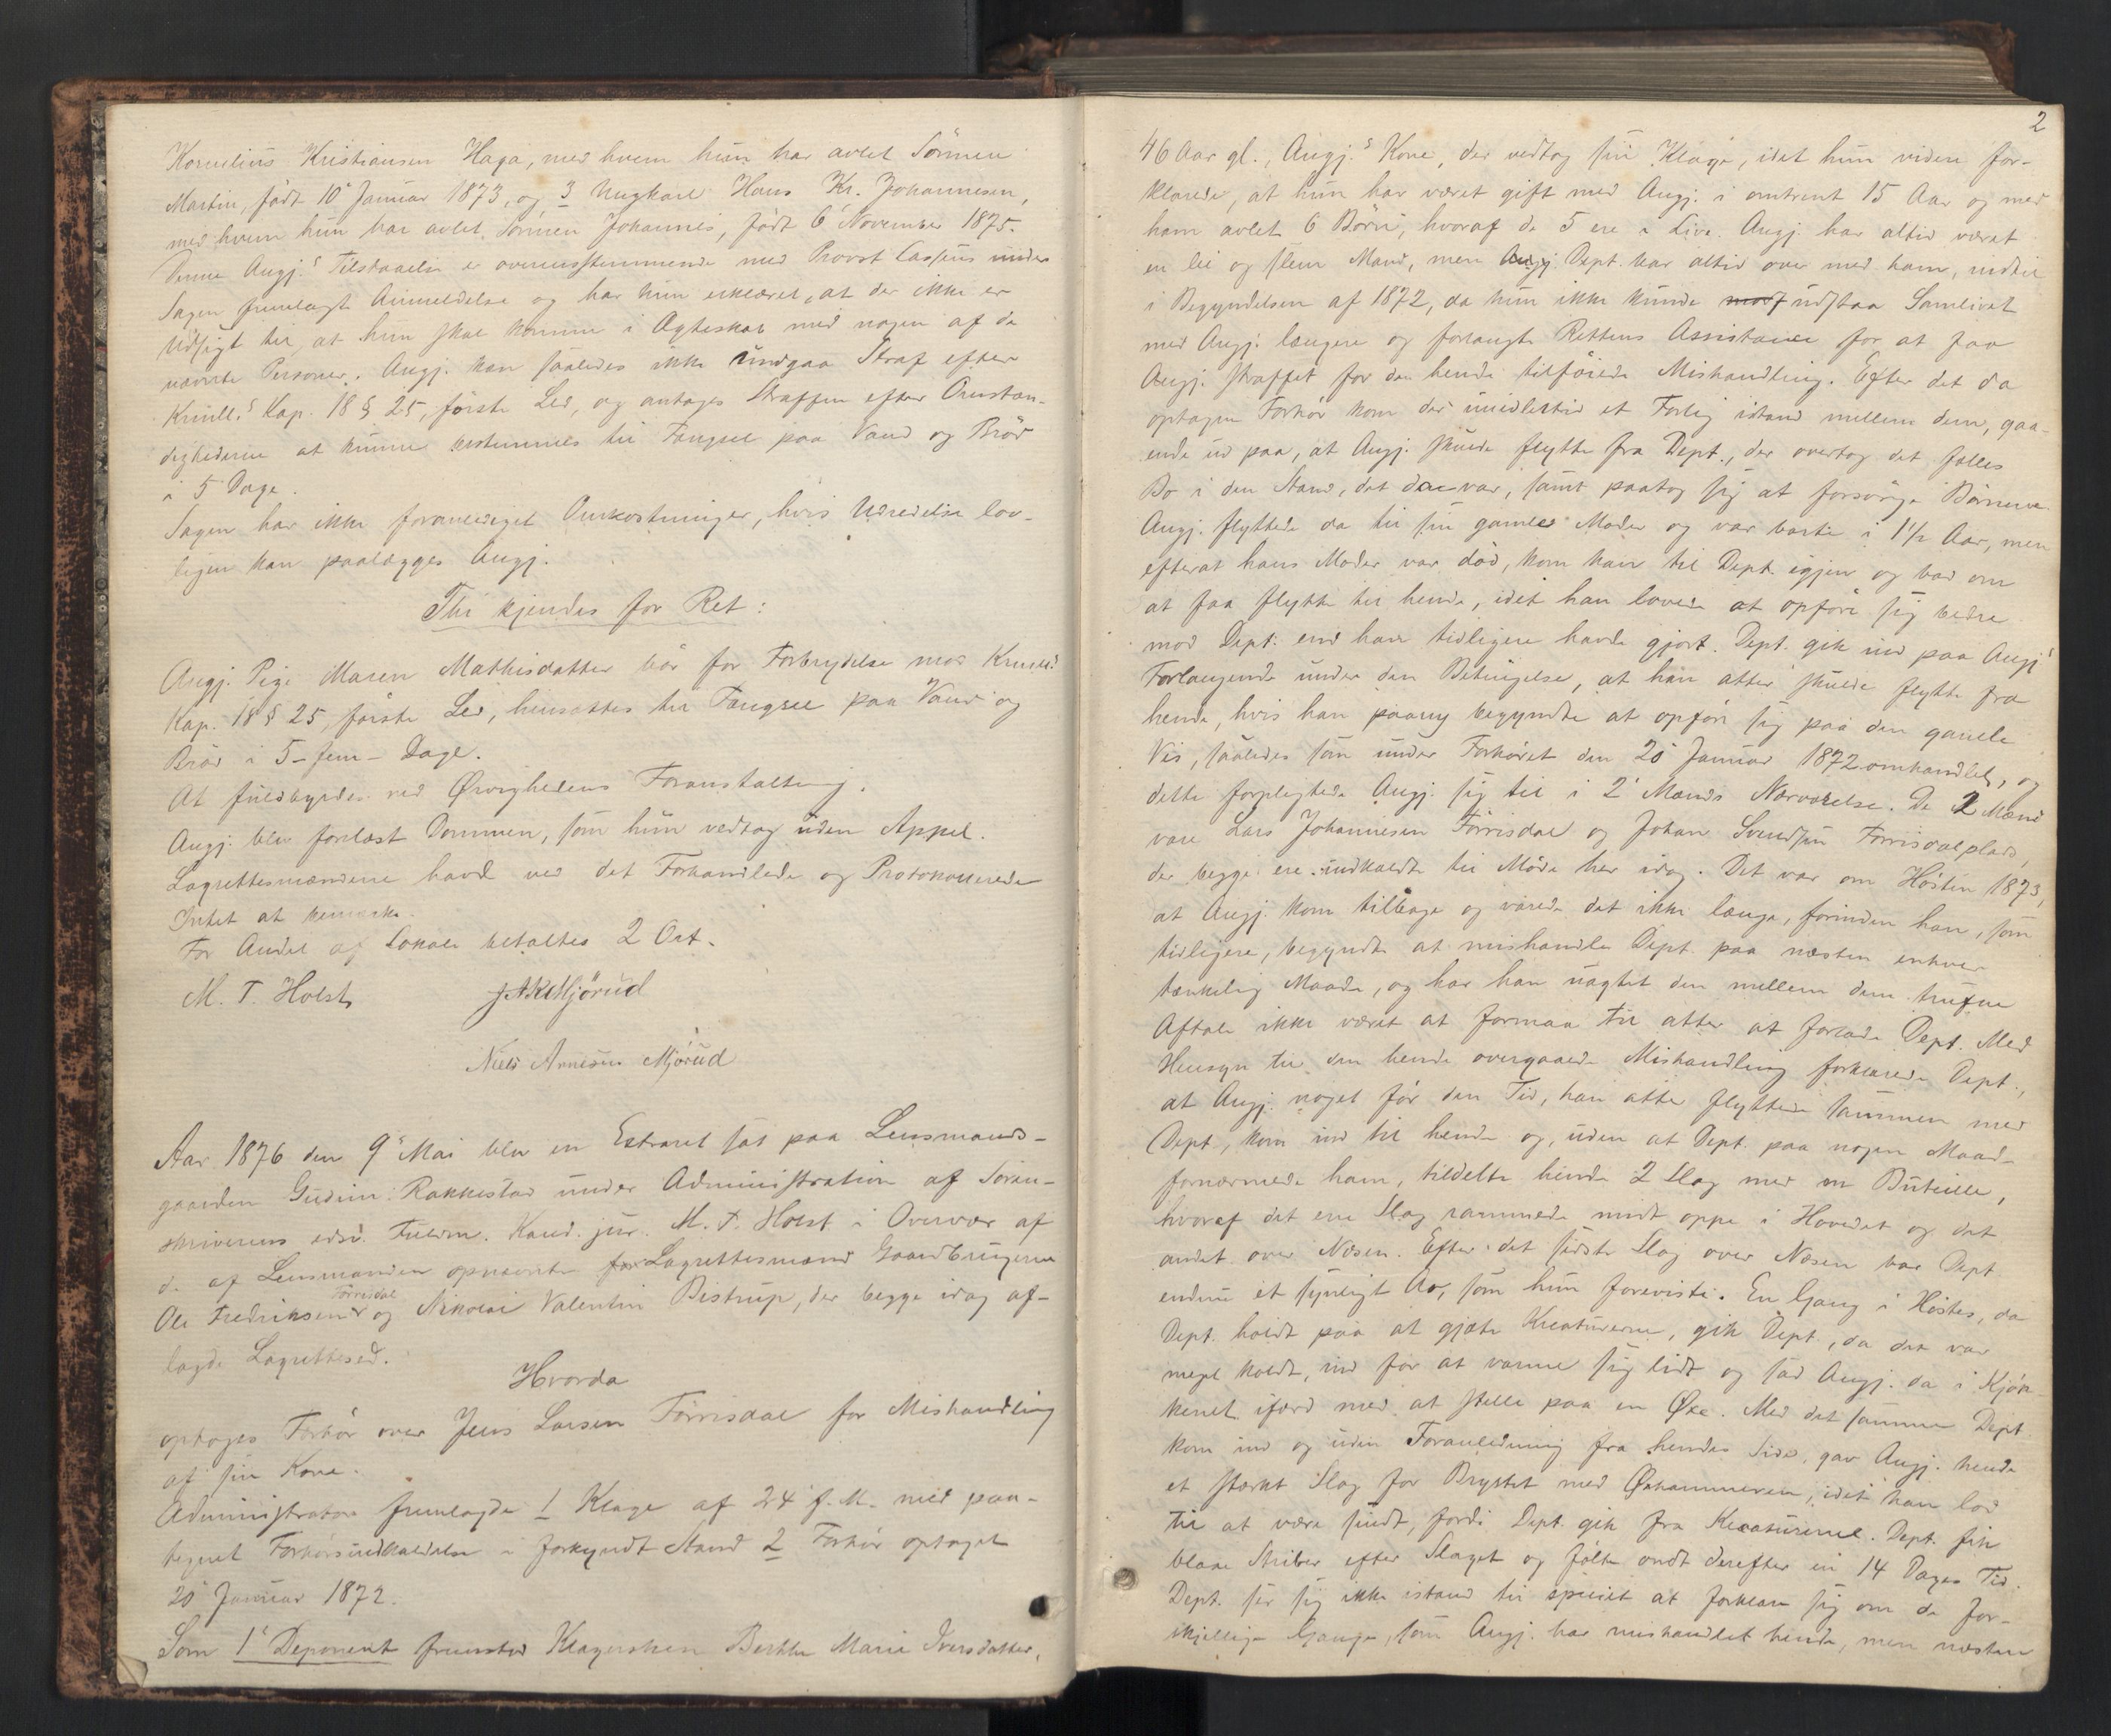 Kornelius Kristiansen Haga, med hvem hun har avlet Sönnen
Martin, født 10de Januar 1873, og 3 Ungkarl Hans Kr. Johannesen,
med hvem hun har avlet Sönnen Johannes, født 6 November 1875.
Denne Angj.s Tilstaaelse er overensstemmende med Provst Lassens under
Sagen fremlagt Anmeldelse og har hun erklæret, at der ikke er
Udsigt til, at hun skal komme i Ægteskab med nogen af de
nævnte Personer. Angj. kan saaledes ikke undgaa Straf efter
Krimll.s Kap. 18 § 25, første Led, og antages Straffen efter Omstæn-
dighederne at kunne bestemmes til Fængsel paa Vand og Bröd
i 5 Dage.
Sagen har ikke foranlediget Omkostninger, hvis Udredelse lov-
ligen kan paalægges Angj.
Thi kjendes for Ret:
Angj. Pige Maren Mathisdatter bör for Forbrydelse mod Krimll.s
Kap. 18 § 25, første Led, hensættes til Fængsel paa Vand og
Bröd i 5 - fem - Dage.
At fuldbyrdes ved Øvrighedens Foranstaltning.
Angj. blev forelæst Dommen, som hun vedtog uden Appel.
Lagrettesmændene havde ved det Forhandlede og Protokollerede
Intet at bemærke.
For Andel af Lokale betaltes 2 Ort.
M. T. Holst J A K Mjörud
Niels Arnesen Mjörud
Aar 1876 den 9de Mai blev en Extraret sat paa Lensmands-
gaarden Gudim i Rakkestad under Administration af Soren-
skriverens edsv. Fuldm. Kand. jur. M. T. Holst i Overvær af
d. af Lensmanden opnævnte for Lagrettesmænd Gaardbrugerne
Ole Fredriksen Törrisdal og Nikolai Valentin Bistrup, der begge idag af-
lagde Lagrettesed.
Hvorda
optoges Forhör over Jens Larsen Törrisdal for Mishandling
af sin Kone.
Administrator fremlagde 1 Klage af 24 f. M. med paa-
tegnet Forhörsindkaldelse i forkyndt Stand 2 Forhör optaget
20de Januar 1872.
Som 1ste Deponent fremstod Klagersken Berthe Marie Iversdatter,
2
46 Aar gl., Angj.s Kone, der vedtog sin Klage, idet hun videre for-
klarede, at hun har været gift med Angj. i omtrent 15 Aar og med
ham avlet 6 Börn, hvoraf de 5 ere i Live. Angj. har altid været
en lei og slem Mand, men Dept. bar altid over med ham, indtil
i Begyndelsen af 1872, da hun ikke kunde udstaa Samlivet
med Angj. længere og forlangte Rettens Assistance for at faa
Angj. straffet for den hende tilföiede Mishandling. Efter det da
optagne Forhör kom der imidlertid et Forlig istand mellem dem, gaa-
ende ud paa, at Angj. skulde flytte fra Dept., der overtog det fælles
Bo i den Stand, det da var, samt paatog sig at forsörge Börnene.
Angj. flyttede da til sin gamle Moder og var borte i 1 1/2 Aar, men
efterat hans Moder var död, kom han til Dept. igjen og bad om
at faa flytte til hende, idet han lovede at opföre sig bedre
mod Dept. end han tidligere havde gjort. Dept. gik ind paa Angj.s
Forlangende under den Betingelse, at han atter skulde flytte fra
hende, hvis han paany begyndte at opföre sig paa den gamle
Vis, saaledes som under Forhöret den 20de Januar 1872 omhandlet, og
dette forpligtede Angj. sig til i 2 Mænds Nærværelse. De 2 Mænd
vare Lars Johannesen Törrisdal og Johan Svendsen Törrisdalplads,
der begge ere indkaldte til Möde her idag. Det var om Hösten 1873,
at Angj. kom tilbage og varede det ikke længe, forinden han, som
tidligere, begyndte at mishandle Dept. paa næsten enhver
tænkelig Maade, og har han uagtet den mellem dem trufne
Aftale ikke været at formaa til atter at forlade Dept. Med
Hensyn til den hende overgaaede Mishandling forklarede Dept.,
at Angj. noget för den Tid, han atter flyttede sammen med
Dept., kom ind til hende og, uden at Dept. paa nogen Maade
fornærmede ham, tildelte hende 2 Slag med en Buteille,
hvoraf det ene Slag rammede midt oppe i Hovedet og det
andet over Næsen. Efter det sidste Slag over Næsen bar Dept
endnu et synligt Ar, som hun foreviste. En Gang i Höstes, da
Dept. holdt paa at gjæte Kreaturerne, gik Dept., da det var
meget koldt, ind for at varme sig lidt og sad Angj. da i Kjök-
kenet ifærd med at stelle paa en Øxe. Med det samme Dept.
kom ind og uden Foranledning fra hendes Side, gav Angj. hende
et stærkt Slag for Brystet med Øxhammeren, idet han lod
til at være sindt, fordi Dept. gik fra Kreaturerne. Dept. fik
blaae Striber efter Slaget og fölte ondt derefter en 14 Dages Tid.
Dept. ser sig ikke istand til specielt at forklare sig om de for-
skjellige Gange, som Angj. har mishandlet hende, men næsten